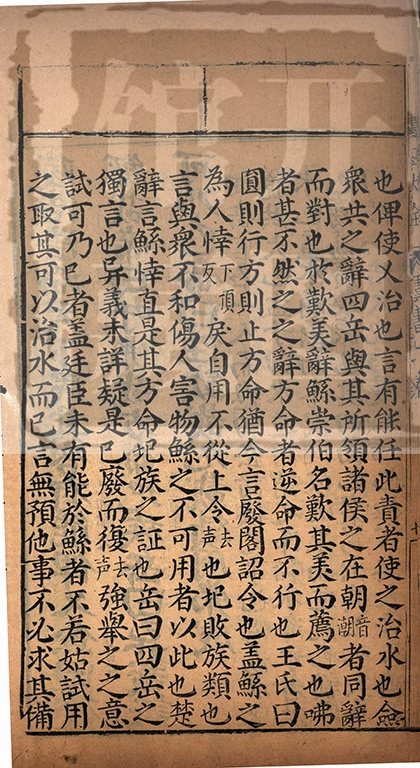 也俾使乂治也言有能任此責者使之治水也僉
衆共之辭四岳與其所領諸侯之在朝音潮者同辭
而對也於歎美辭鯀崇伯名歎其美而薦之也咈
者甚不然之之辭方命者逆命而不行也王氏曰
圓則行方則止方命猶今言廢閣詔令也蓋鯀之
為人悻下頂反戾自用不從上令去声也圮敗族類也
言與衆不和傷人害物鯀之不可用者以此也楚
辭言鯀悻直是其方命圮族之証也岳曰四岳之
獨言也异義未詳疑是已廢而復去声強舉之之意
試可乃已者蓋廷臣未有能於鯀者不若姑試用
之取其可以治水而已言無預他事不必求其備